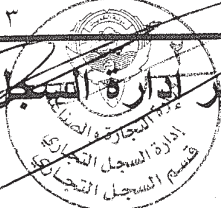 ٣
ر إدارة السجل
التجارة والصناعة
إدارة السجل التجاري
قسم السجل التجاري